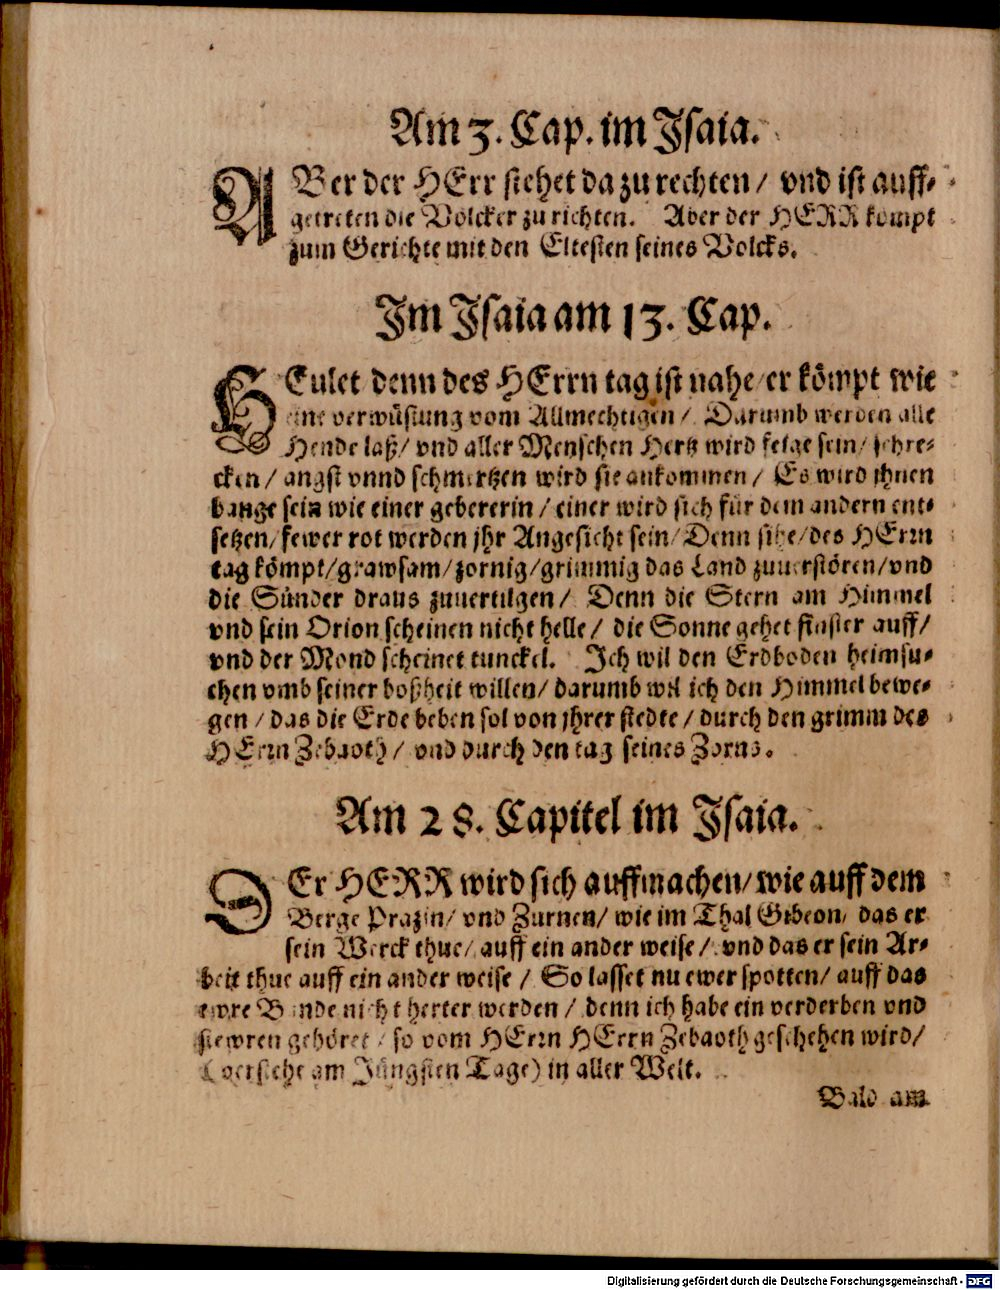 Am 3. Cap. im Jsaia.
ABer der HErr stehet da zu rechten / vnd ist auff-
getreten die Völcker zu richten. Aber der HERR kompt
zum Gerichte mit den Eltesten seines Volcks.
Jm Jsaia am 13. Cap.
HEulet denn des HErrn tag ist nahe / er kömpt wie
eine verwüstung vom Allmechtigen / Darumb werden alle
Hende laß / vnd aller Menschen Hertz wird feige sein / schre-
cken / angst vnnd schmertzen wird sie ankommen / Es wird jhnen
bange sein wie einer gebererin / einer wird sich für dem andern ent-
setzen / fewer rot werden jhr Angesicht sein / Denn sihe / des HErrn
tag kömpt / grawsam / zornig / grimmig das Land zuuerstören / vnd
die Sünder draus zuuertilgen / Denn die Stern am Himmel
vnd sein Orion scheinen nicht helle / die Sonne gehet finster auff /
vnd der Mond scheinet tunckel. Jch wil den Erdboden heimsu-
chen vmb seiner boßheit willen / darumb wil ich den Himmel bewe-
gen / das die Erde beben sol von jhrer stedte / durch den grimm des
HErrn Zebaoth / vnd durch den tag seines Zorns.
Am 28. Capitel im Jsaia.
DEr HERR wird sich auffmachen / wie auff dem
Berge Prazin / vnd Zürnen / wie im Thal Gibeon / das er
sein Werck thue / auff ein ander weise / vnd das er sein Ar-
beit thue auff ein ander weise / So lasset nu ewer spotten / auff das
ewre Bande nicht herter werden / denn ich habe ein verderben vnd
stewren gehöret / so vom HErrn HErrn Zebaoth geschehen wird /
(versiehe am Jüngsten Tage) in aller Welt.
Bald am
Digitalisierung gefördert durch die Deutsche Forschungsgemeinschaft - DFG